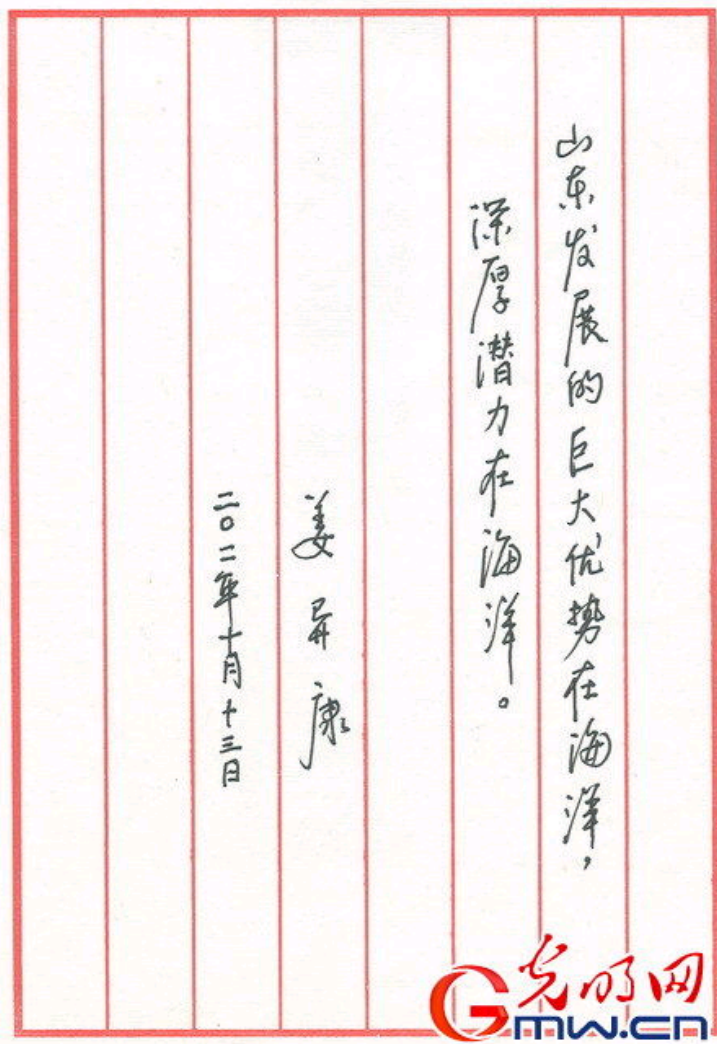 山东发展的巨大优势在海洋，
深厚潜力在海洋。
姜异康
二〇一二年十月十三日
光明网
GMW.CN